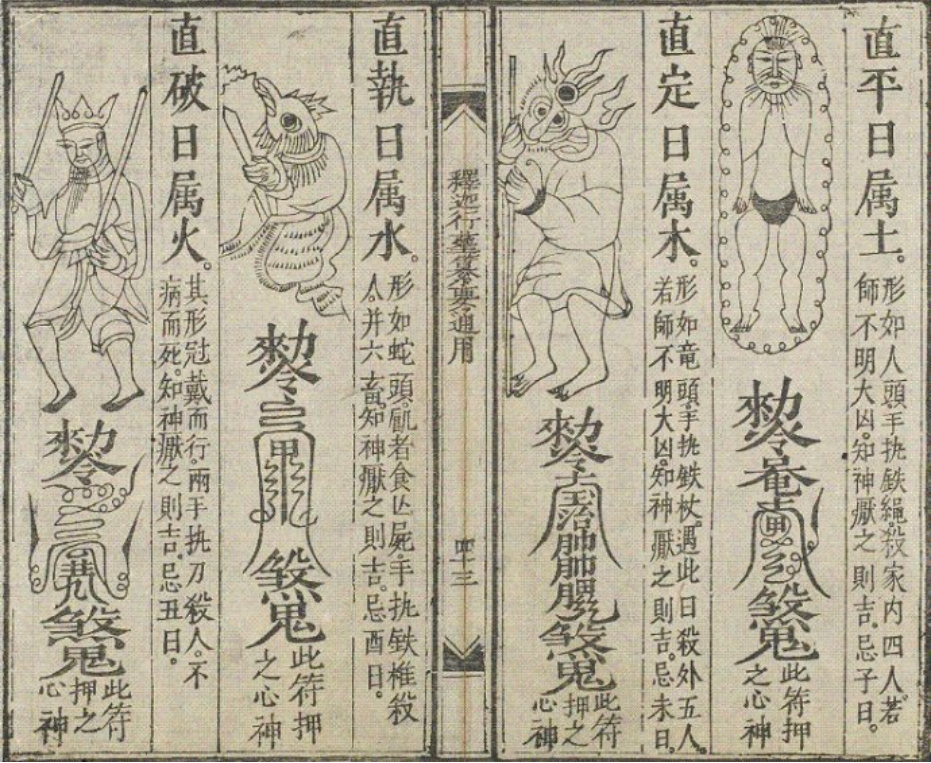 直平日属土。
形如人頭。手执鉄繩。殺家内四人。若
師不明大凶。知神厭之則吉。忌子日。
勅令
煞鬼
此符押
之心神
直定日属木。
形如竜頭。手执鉄杖。遇此日殺外五人。
若師不明大凶。知神厭之則吉。忌未日。
勅令
煞鬼
此符
押之
心神
釋迦行
通用
四十三
直執日属水。
形如蛇頭。食亾屍。手执鉄椎殺
人。并六畜。知神厭之則吉。忌酉日。
勅令
煞鬼
此符押
之心神
直破日属火。
其形冠戴而行。兩手执刀殺人。不
病而死。知神厭之則吉。忌丑日。
勅令
煞鬼
此符
押之
心神